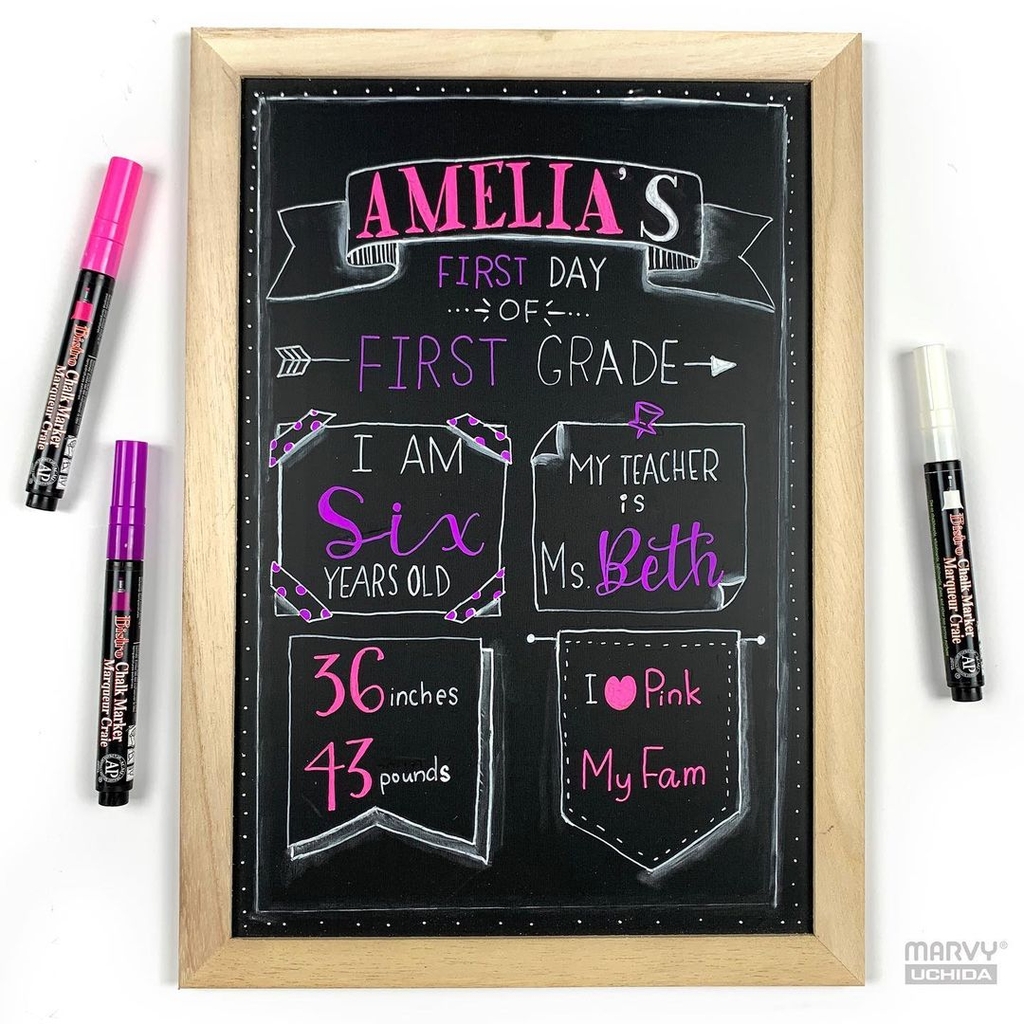 AMELIA'S
FIRST DAY
OF
FIRST GRADE
I AM
Six
YEARS OLD
MY TEACHER
is
Ms. Beth
36 inches
43 pounds
I ♥ Pink
My Fam
Bistro Chalk Marker
Marqueur Craie
AP
Bistro Chalk Marker
Marqueur Craie
AP
Bistro Chalk Marker
Marqueur Craie
AP
MARVY®
UCHIDA